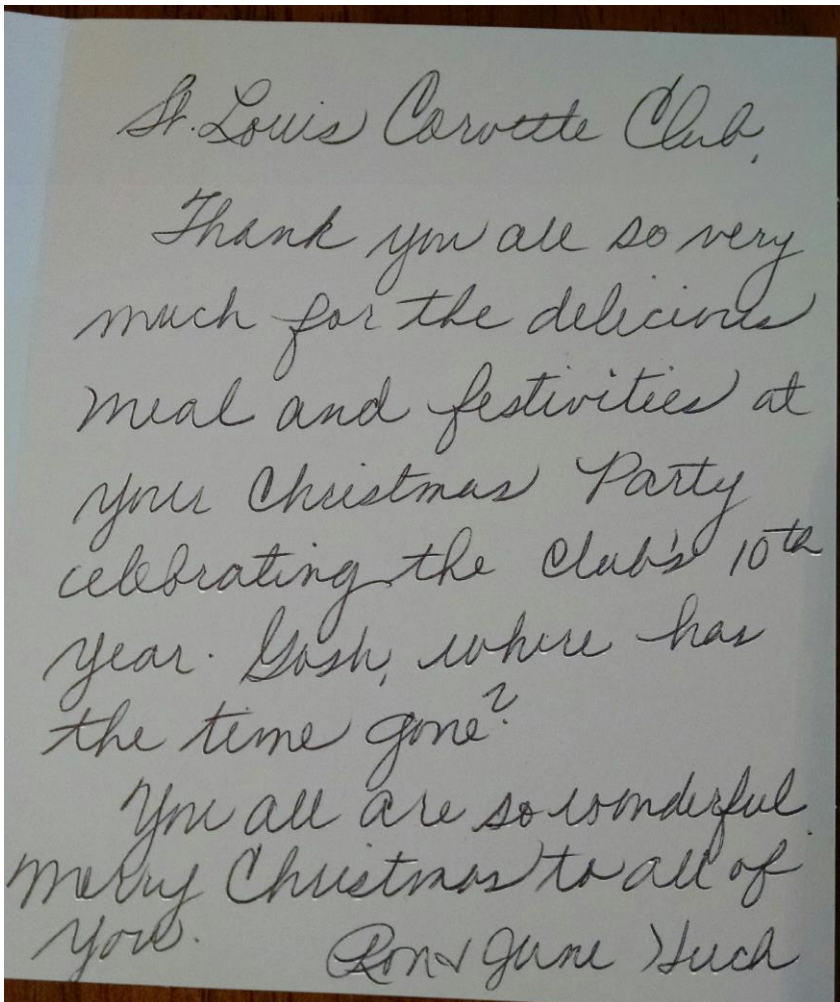 St. Louis Corvette Club,
Thank you all so very
much for the delicious
meal and festivities at
your Christmas Party
celebrating the Club's 10th
year. Gosh, where has
the time gone?
You all are so wonderful.
Merry Christmas to all of
you. Ron & June